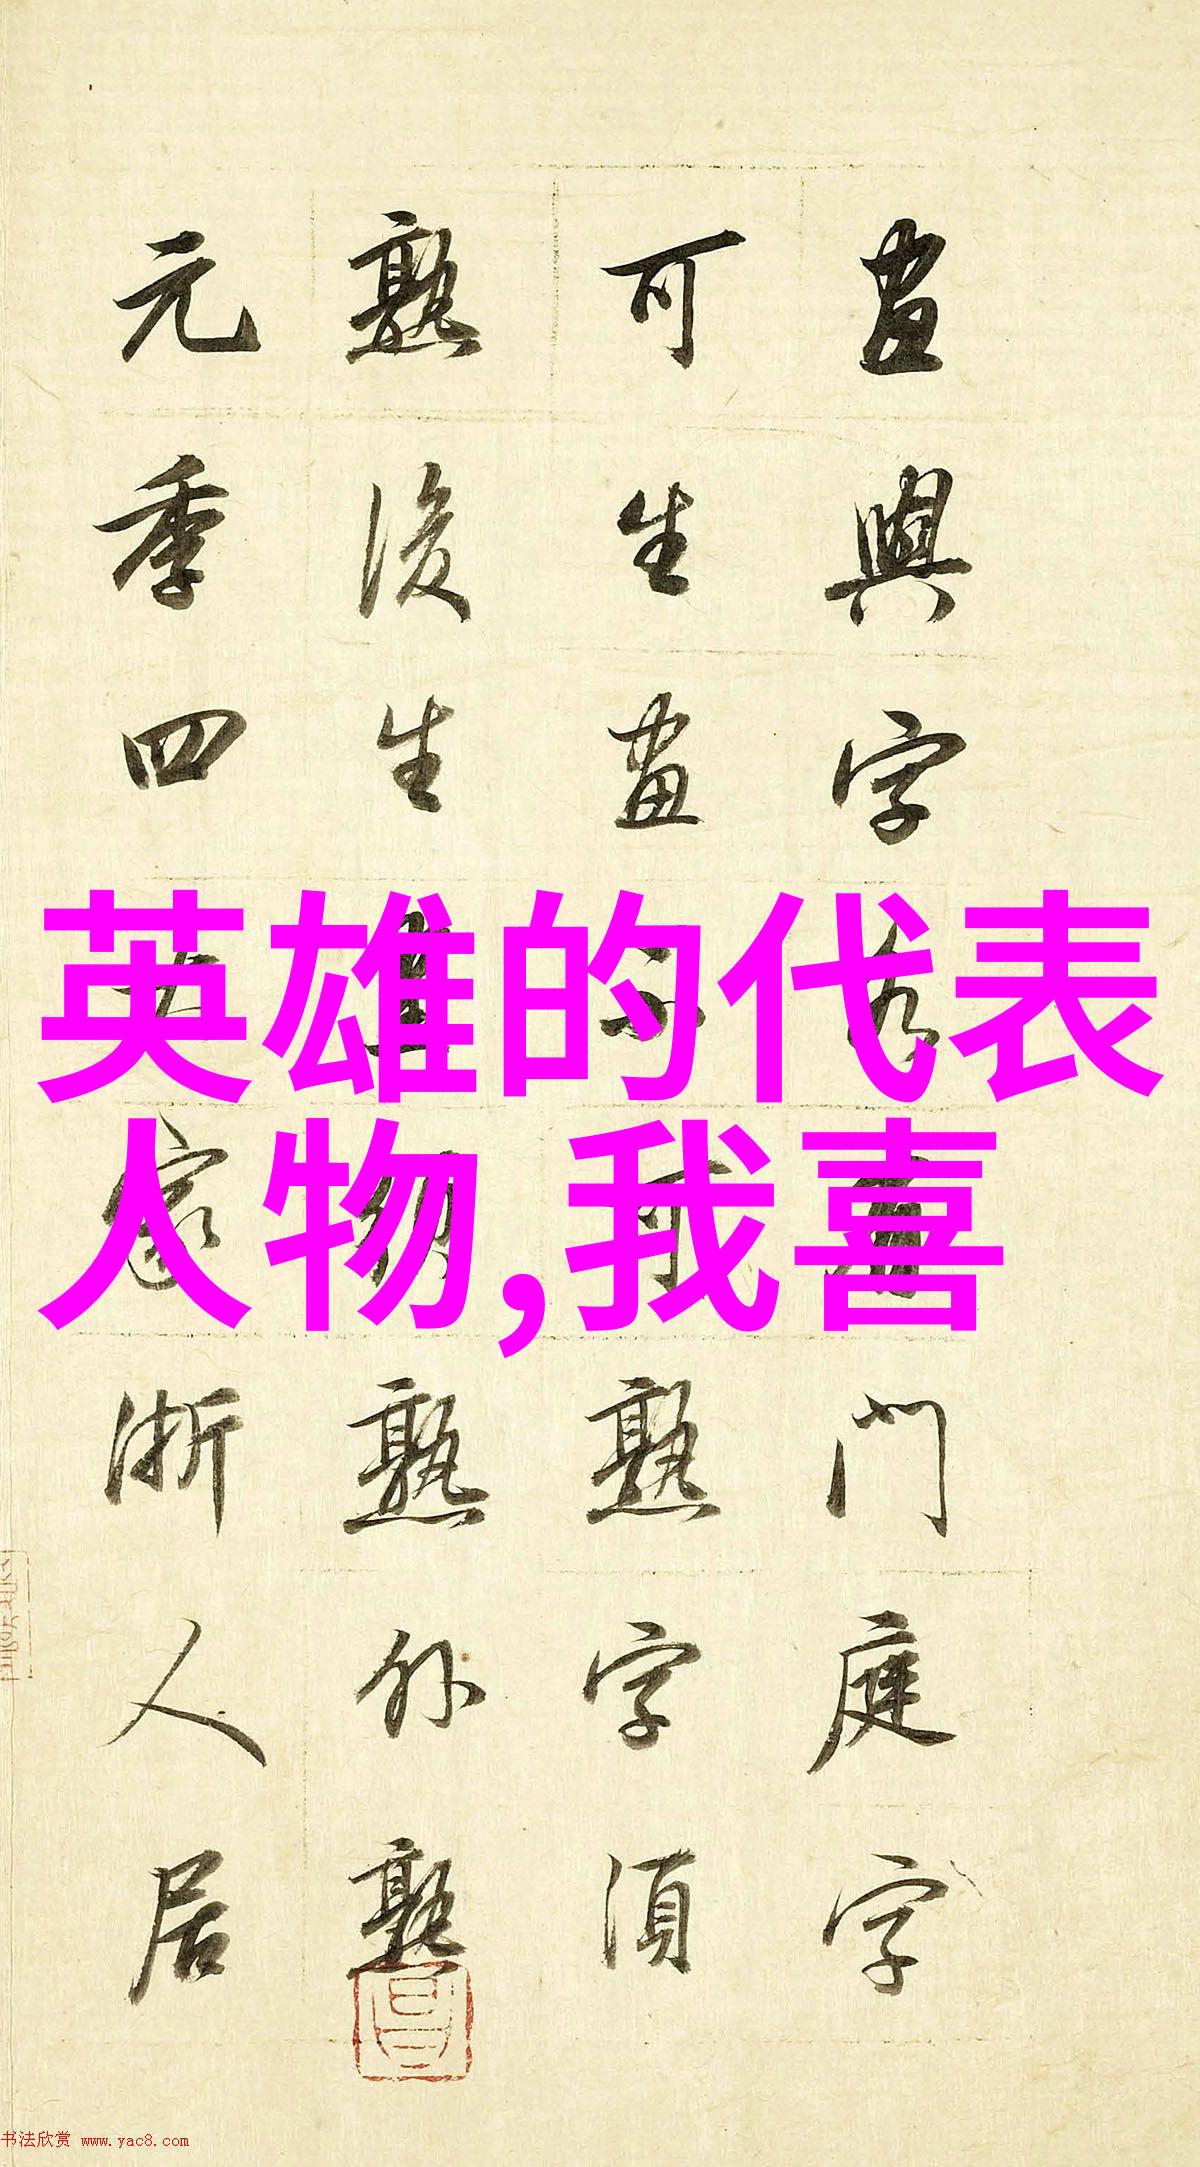 畫與字各有門庭字
可生畫不可熟字須
熟後生畫須熟外熟
元季四大家浙人居
英雄的代表
人物,我喜
书法欣赏 www.yac8.com